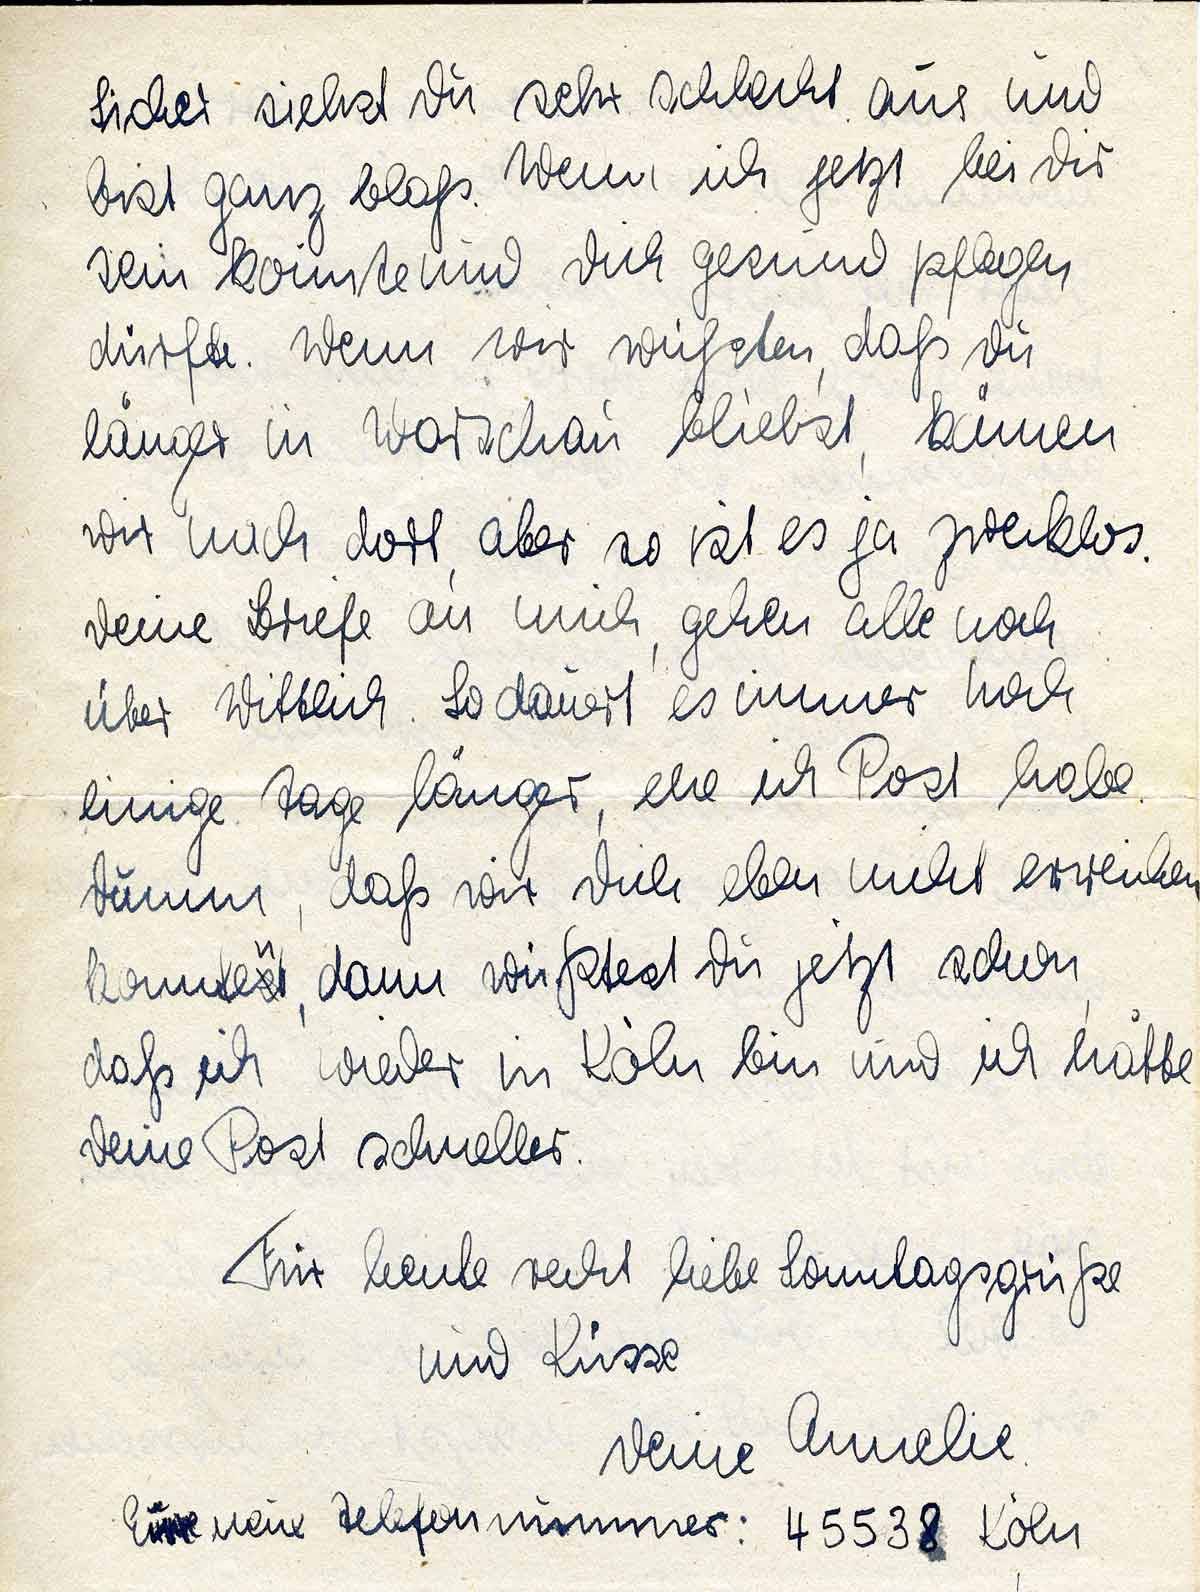 Sicher siehst Du sehr schlecht aus und
bist ganz blaß. Wenn ich jetzt bei Dir
sein könnte und Dich gesund pflegen
dürfte. Wenn wir wüßten, daß Du
länger in Warschau bliebst, kämen
wir nach dort, aber so ist es ja zwecklos.
Deine Briefe an mich, gehen alle noch
über Wittlich. So dauert es immer noch
einige Tage länger, ehe ich Post habe.
Dumm, daß wir Dich eben nicht erreichen
konnten, dann wüßtest Du jetzt schon,
daß ich wieder in Köln bin und ich hätte
Deine Post schneller.
Für heute recht liebe Sonntagsgrüße
und Küsse
Deine Annelie.
neue Telefonnummer: 45538 Köln